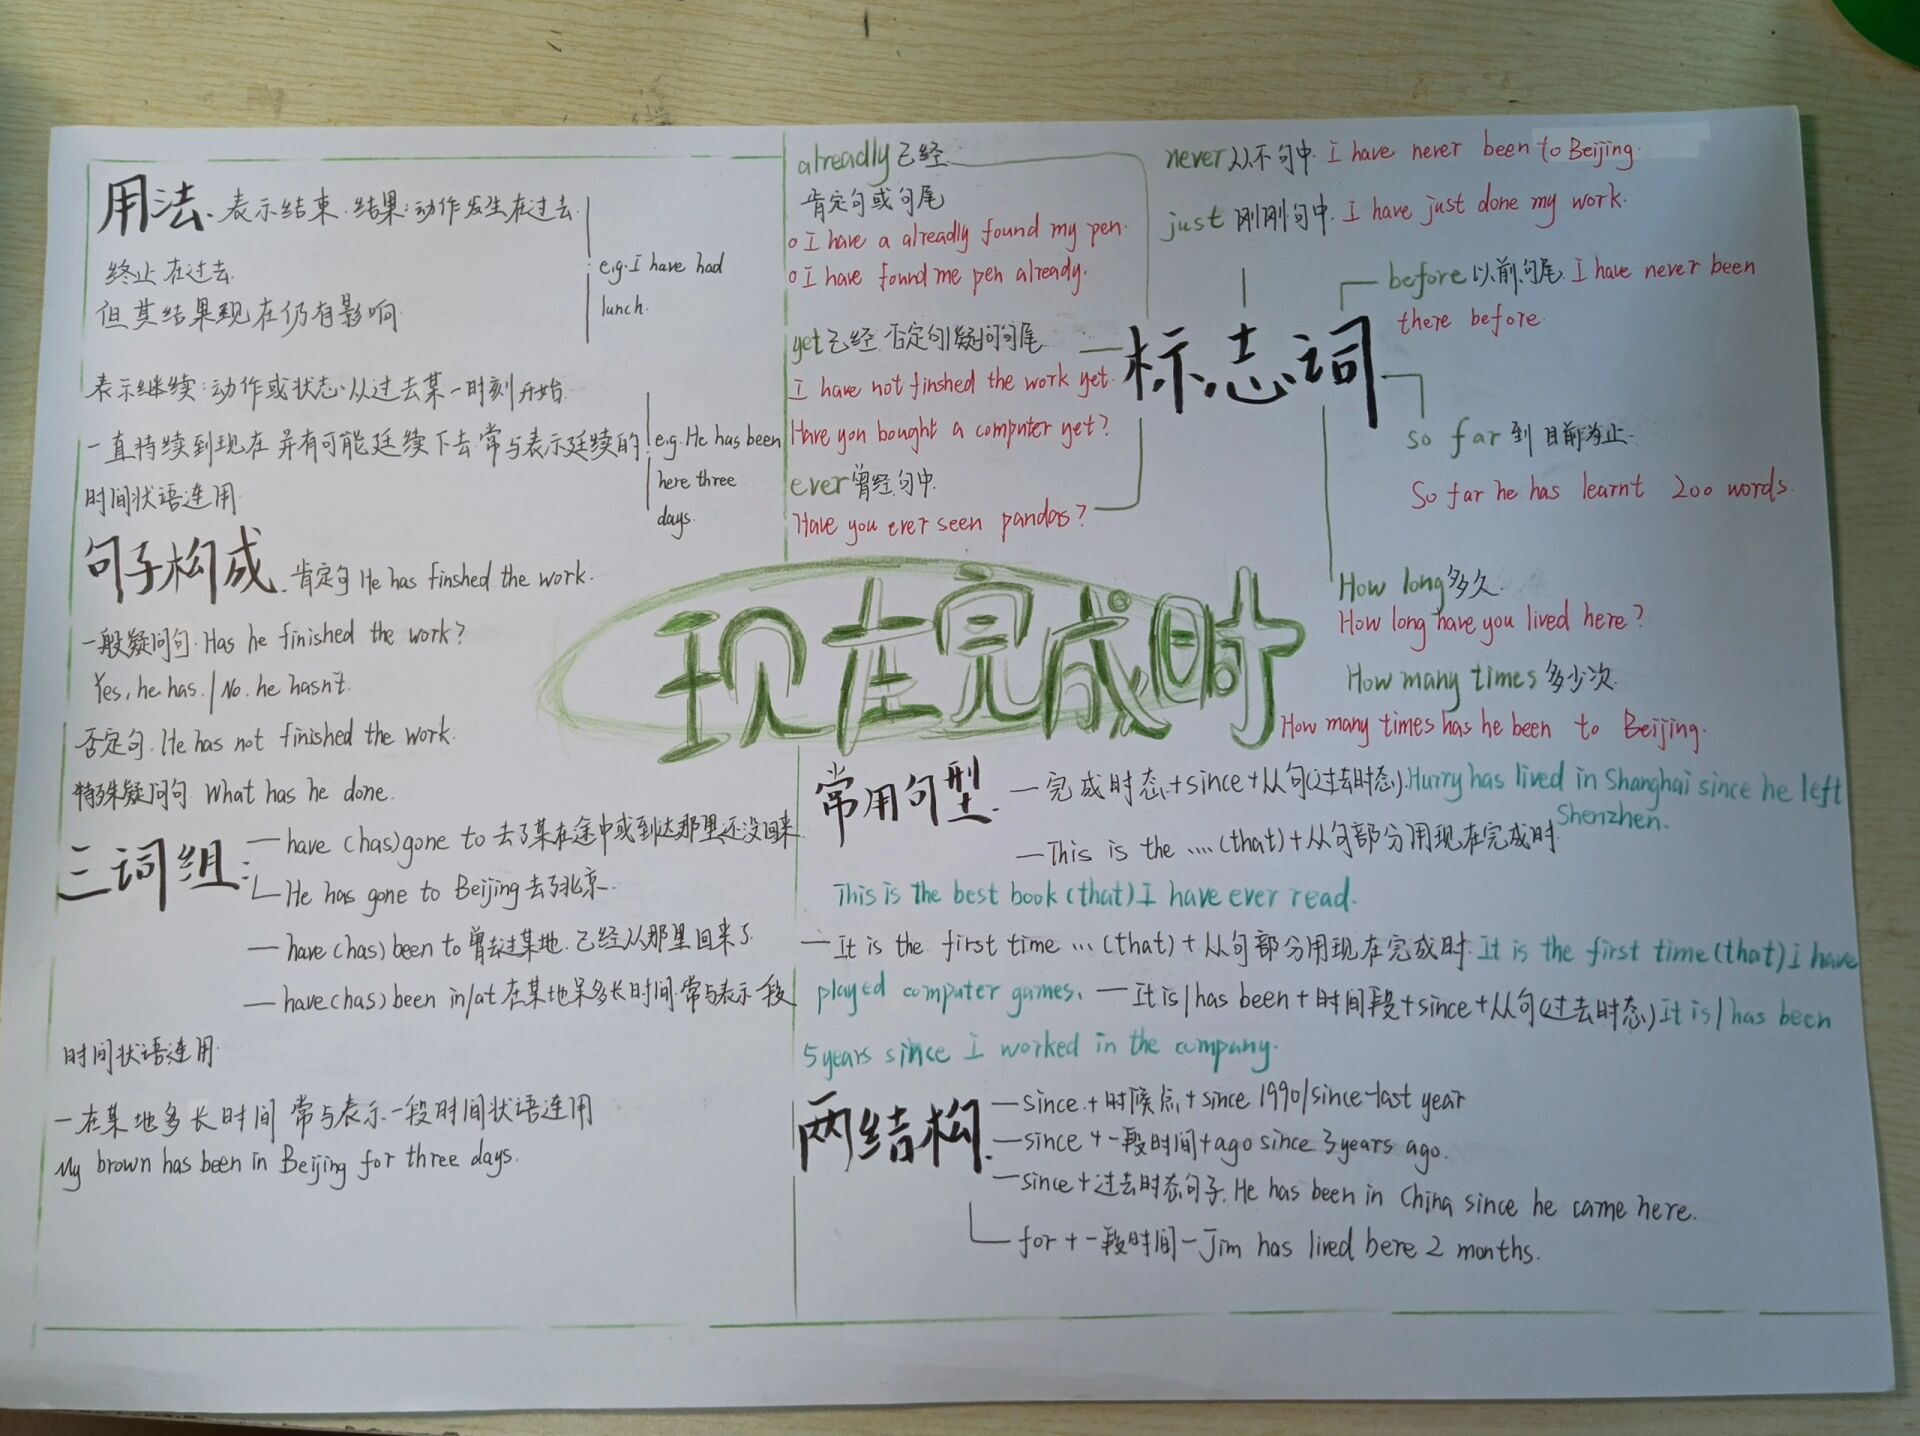 用法、表示结束、结果:动作发生在过去
终止在过去.
但其结果现在仍有影响
e.g. I have had
lunch.
表示继续:动作或状态从过去某一时刻开始
一直持续到现在并有可能延续下去.常与表示延续的
时间状语连用
e.g. He has been
here three
days.
句子构成、肯定句 He has finshed the work.
一般疑问句. Has he finished the work?
Yes, he has. / No. he hasn't.
否定句. He has not finished the work.
特殊疑问句. What has he done.
三词组:
—have (has) gone to 去了某在途中或到达那里还没回来
He has gone to Beijing 去了北京.
—have (has) been to 曾去过某地.已经从那里回来了
—have (has) been in/at 在某地呆多长时间.常与表示一段
时间状语连用.
—在某地多长时间 常与表示一段时间状语连用
My brown has been in Beijing for three days.
alreadly 已经
肯定句或句尾
I have a alreadly found my pen.
I have found me pen already.
yet 已经.否定句|疑问句尾
I have not finshed the work yet.
Have you bought a computer yet?
ever 曾经.句中.
Have you ever seen pandas?
标志词
never 从不句中. I have never been to Beijing.
just 刚刚句中. I have just done my work.
before 以前句尾. I have never been
there before.
so far 到目前为止.
So far he has learnt 200 words.
How long 多久.
How long have you lived here?
How many times 多少次.
How many times has he been to Beijing.
现在完成时
常用句型.
—完成时态+since+从句(过去时态). Hurry has lived in Shanghai since he left
Shenzhen.
—This is the ....(that)+从句部分用现在完成时
This is the best book (that) I have ever read.
—It is the first time ...(that)+从句部分用现在完成时. It is the first time (that) I have
played computer games. —It is/has been+时间段+since+从句(过去时态) It is/has been
5 years since I worked in the company.
两结构.
—since.+时候点+since 1990/since last year
—since+一段时间+ago since 3 years ago.
—since+过去时态句子. He has been in China since he came here.
for+一段时间—Jim has lived bere 2 months.